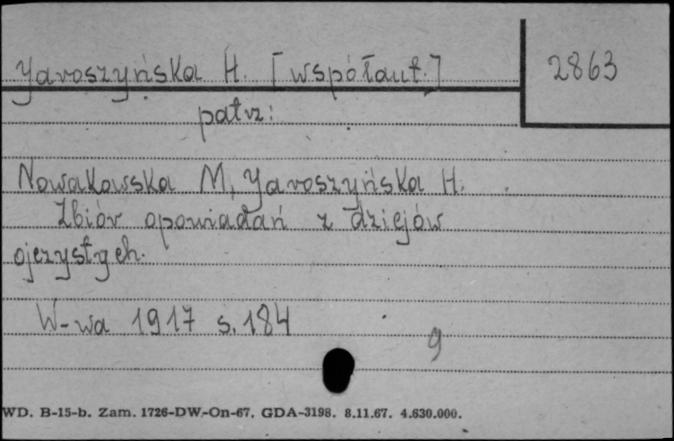 Jaroszyńska H. [współaut.]
2863
patrz:
Nowakowska M, Jaroszyńska H.
Zbiór opowiadań z dziejów
ojczystych.
W-wa 1917 s. 184
9
WD. B-15-b. Zam. 1726-DW-On-67. GDA-3198. 8.11.67. 4.630.000.